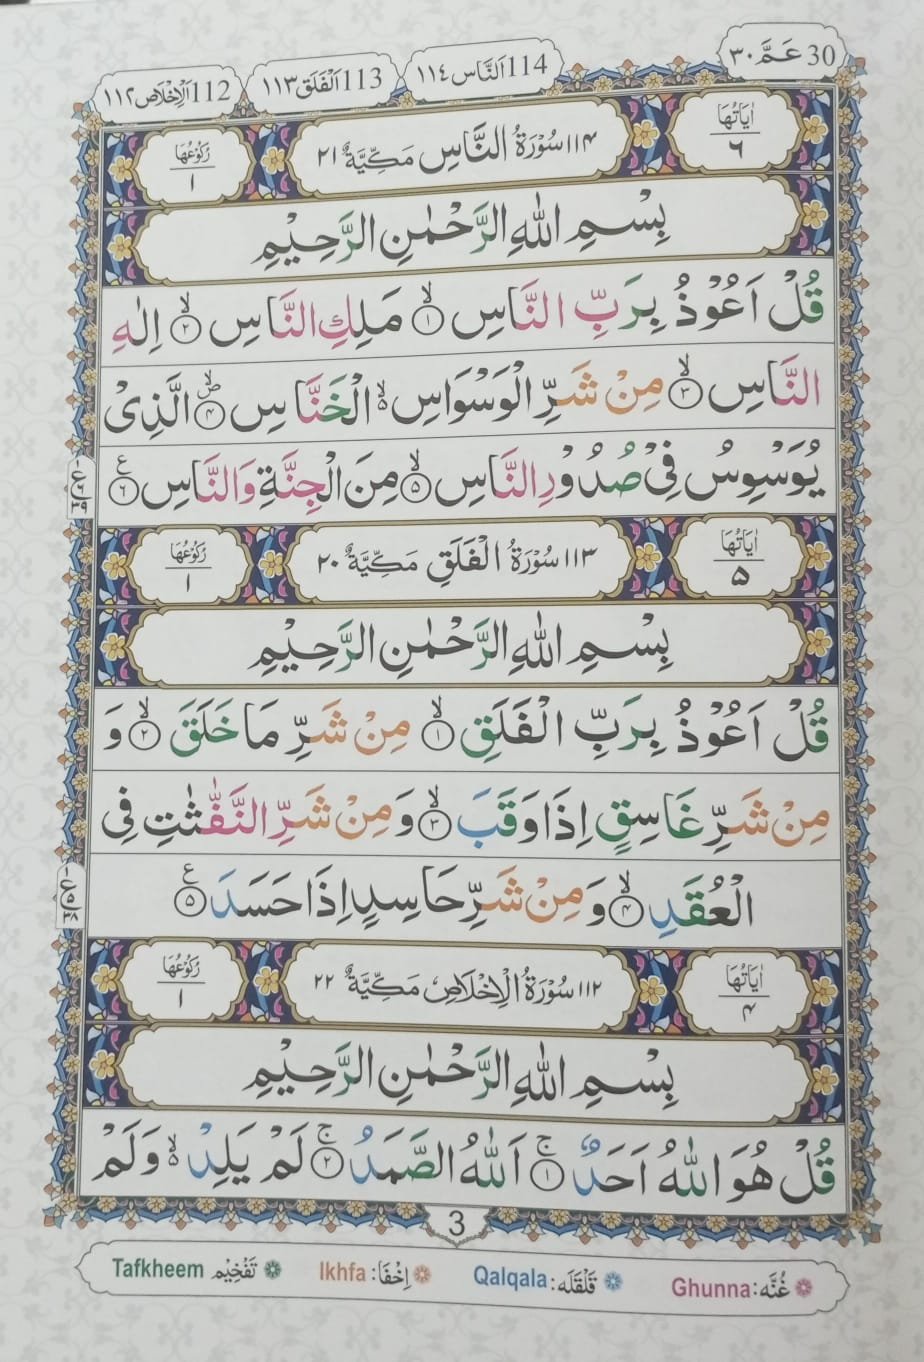 30 عَمَّ ٣٠
114 اَلنَّاس ١١٤
113 اَلْفَلَق ١١٣
112 اَلْاِخْلَاص ١١٢
اٰيَاتُهَا ٦
١١٤ سُوْرَةُ النَّاسِ مَكِّيَّةٌ ٢١
رُكُوْعُهَا ١
بِسْمِ اللّٰهِ الرَّحْمٰنِ الرَّحِيْمِ
قُلْ اَعُوْذُ بِرَبِّ النَّاسِ ۙ﴿١﴾ مَلِكِ النَّاسِ ۙ﴿٢﴾ اِلٰهِ
النَّاسِ ۙ﴿٣﴾ مِنْ شَرِّ الْوَسْوَاسِ ۙ۬ الْخَنَّاسِ ۪ۙ﴿٤﴾ الَّذِىْ
يُوَسْوِسُ فِىْ صُدُوْرِ النَّاسِ ۙ﴿٥﴾ مِنَ الْجِنَّةِ وَالنَّاسِ ﴿٦﴾ ع
اٰيَاتُهَا ٥
١١٣ سُوْرَةُ الْفَلَقِ مَكِّيَّةٌ ٢٠
رُكُوْعُهَا ١
بِسْمِ اللّٰهِ الرَّحْمٰنِ الرَّحِيْمِ
قُلْ اَعُوْذُ بِرَبِّ الْفَلَقِ ۙ﴿١﴾ مِنْ شَرِّ مَا خَلَقَ ۙ﴿٢﴾ وَ
مِنْ شَرِّ غَاسِقٍ اِذَا وَقَبَ ۙ﴿٣﴾ وَمِنْ شَرِّ النَّفّٰثٰتِ فِى
الْعُقَدِ ۙ﴿٤﴾ وَمِنْ شَرِّ حَاسِدٍ اِذَا حَسَدَ ﴿٥﴾ ع
اٰيَاتُهَا ٤
١١٢ سُوْرَةُ الْاِخْلَاصِ مَكِّيَّةٌ ٢٢
رُكُوْعُهَا ١
بِسْمِ اللّٰهِ الرَّحْمٰنِ الرَّحِيْمِ
قُلْ هُوَ اللّٰهُ اَحَدٌ ۚ﴿١﴾ اَللّٰهُ الصَّمَدُ ۚ﴿٢﴾ لَمْ يَلِدْ ۙ۬ وَلَمْ
3
Ghunna: غُنَّه
Qalqala: قَلْقَلَه
Ikhfa: اِخْفَا
Tafkheem تَفْخِيْم